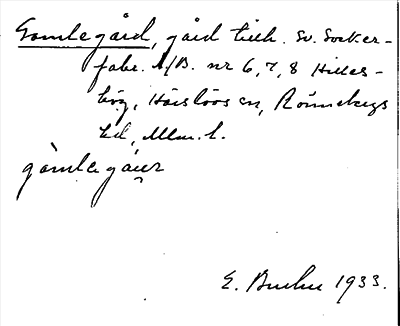 Gamlegård, gård tillh. Sv. Socker-
fabr. A/B. nr 6, 7, 8 Hilles-
hög, Härslövs sn, Rönnebergs
hd, Mlm. l.
gamlegåɹ
E. 1933.